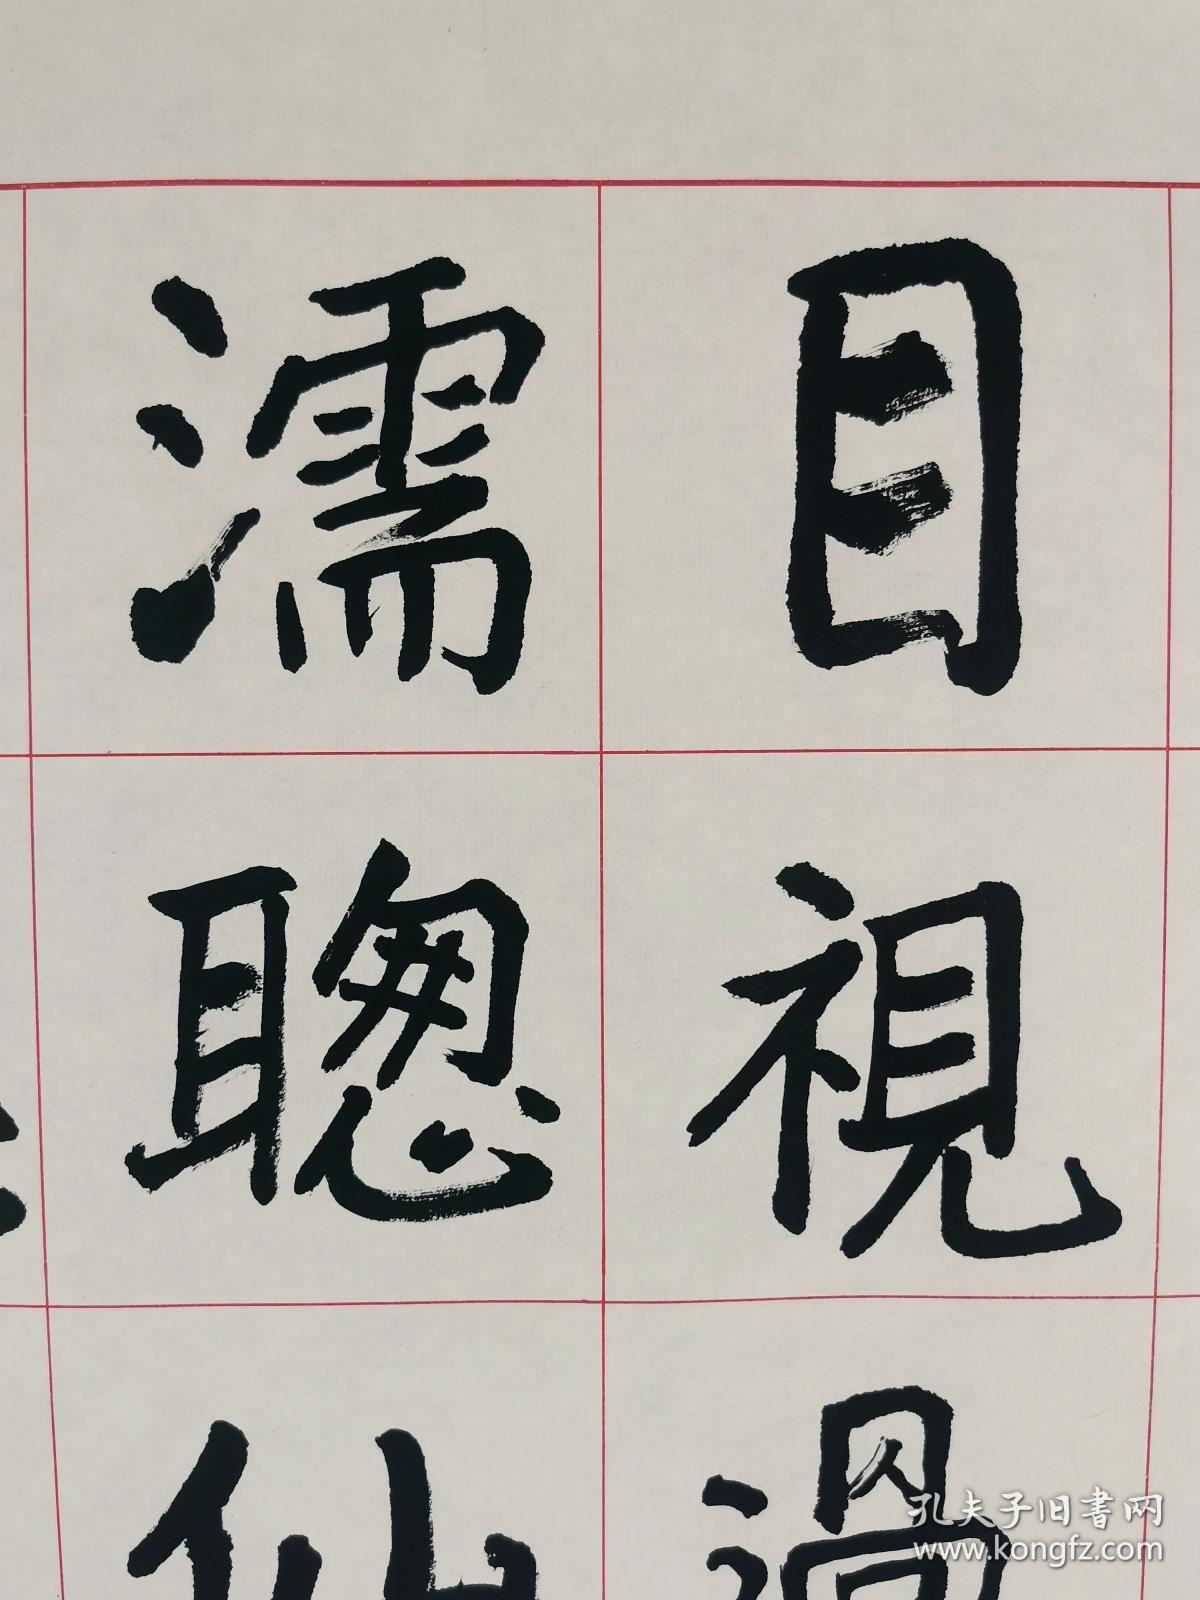 目視過
濡聰仙
孔夫子旧書网
www.kongfz.com